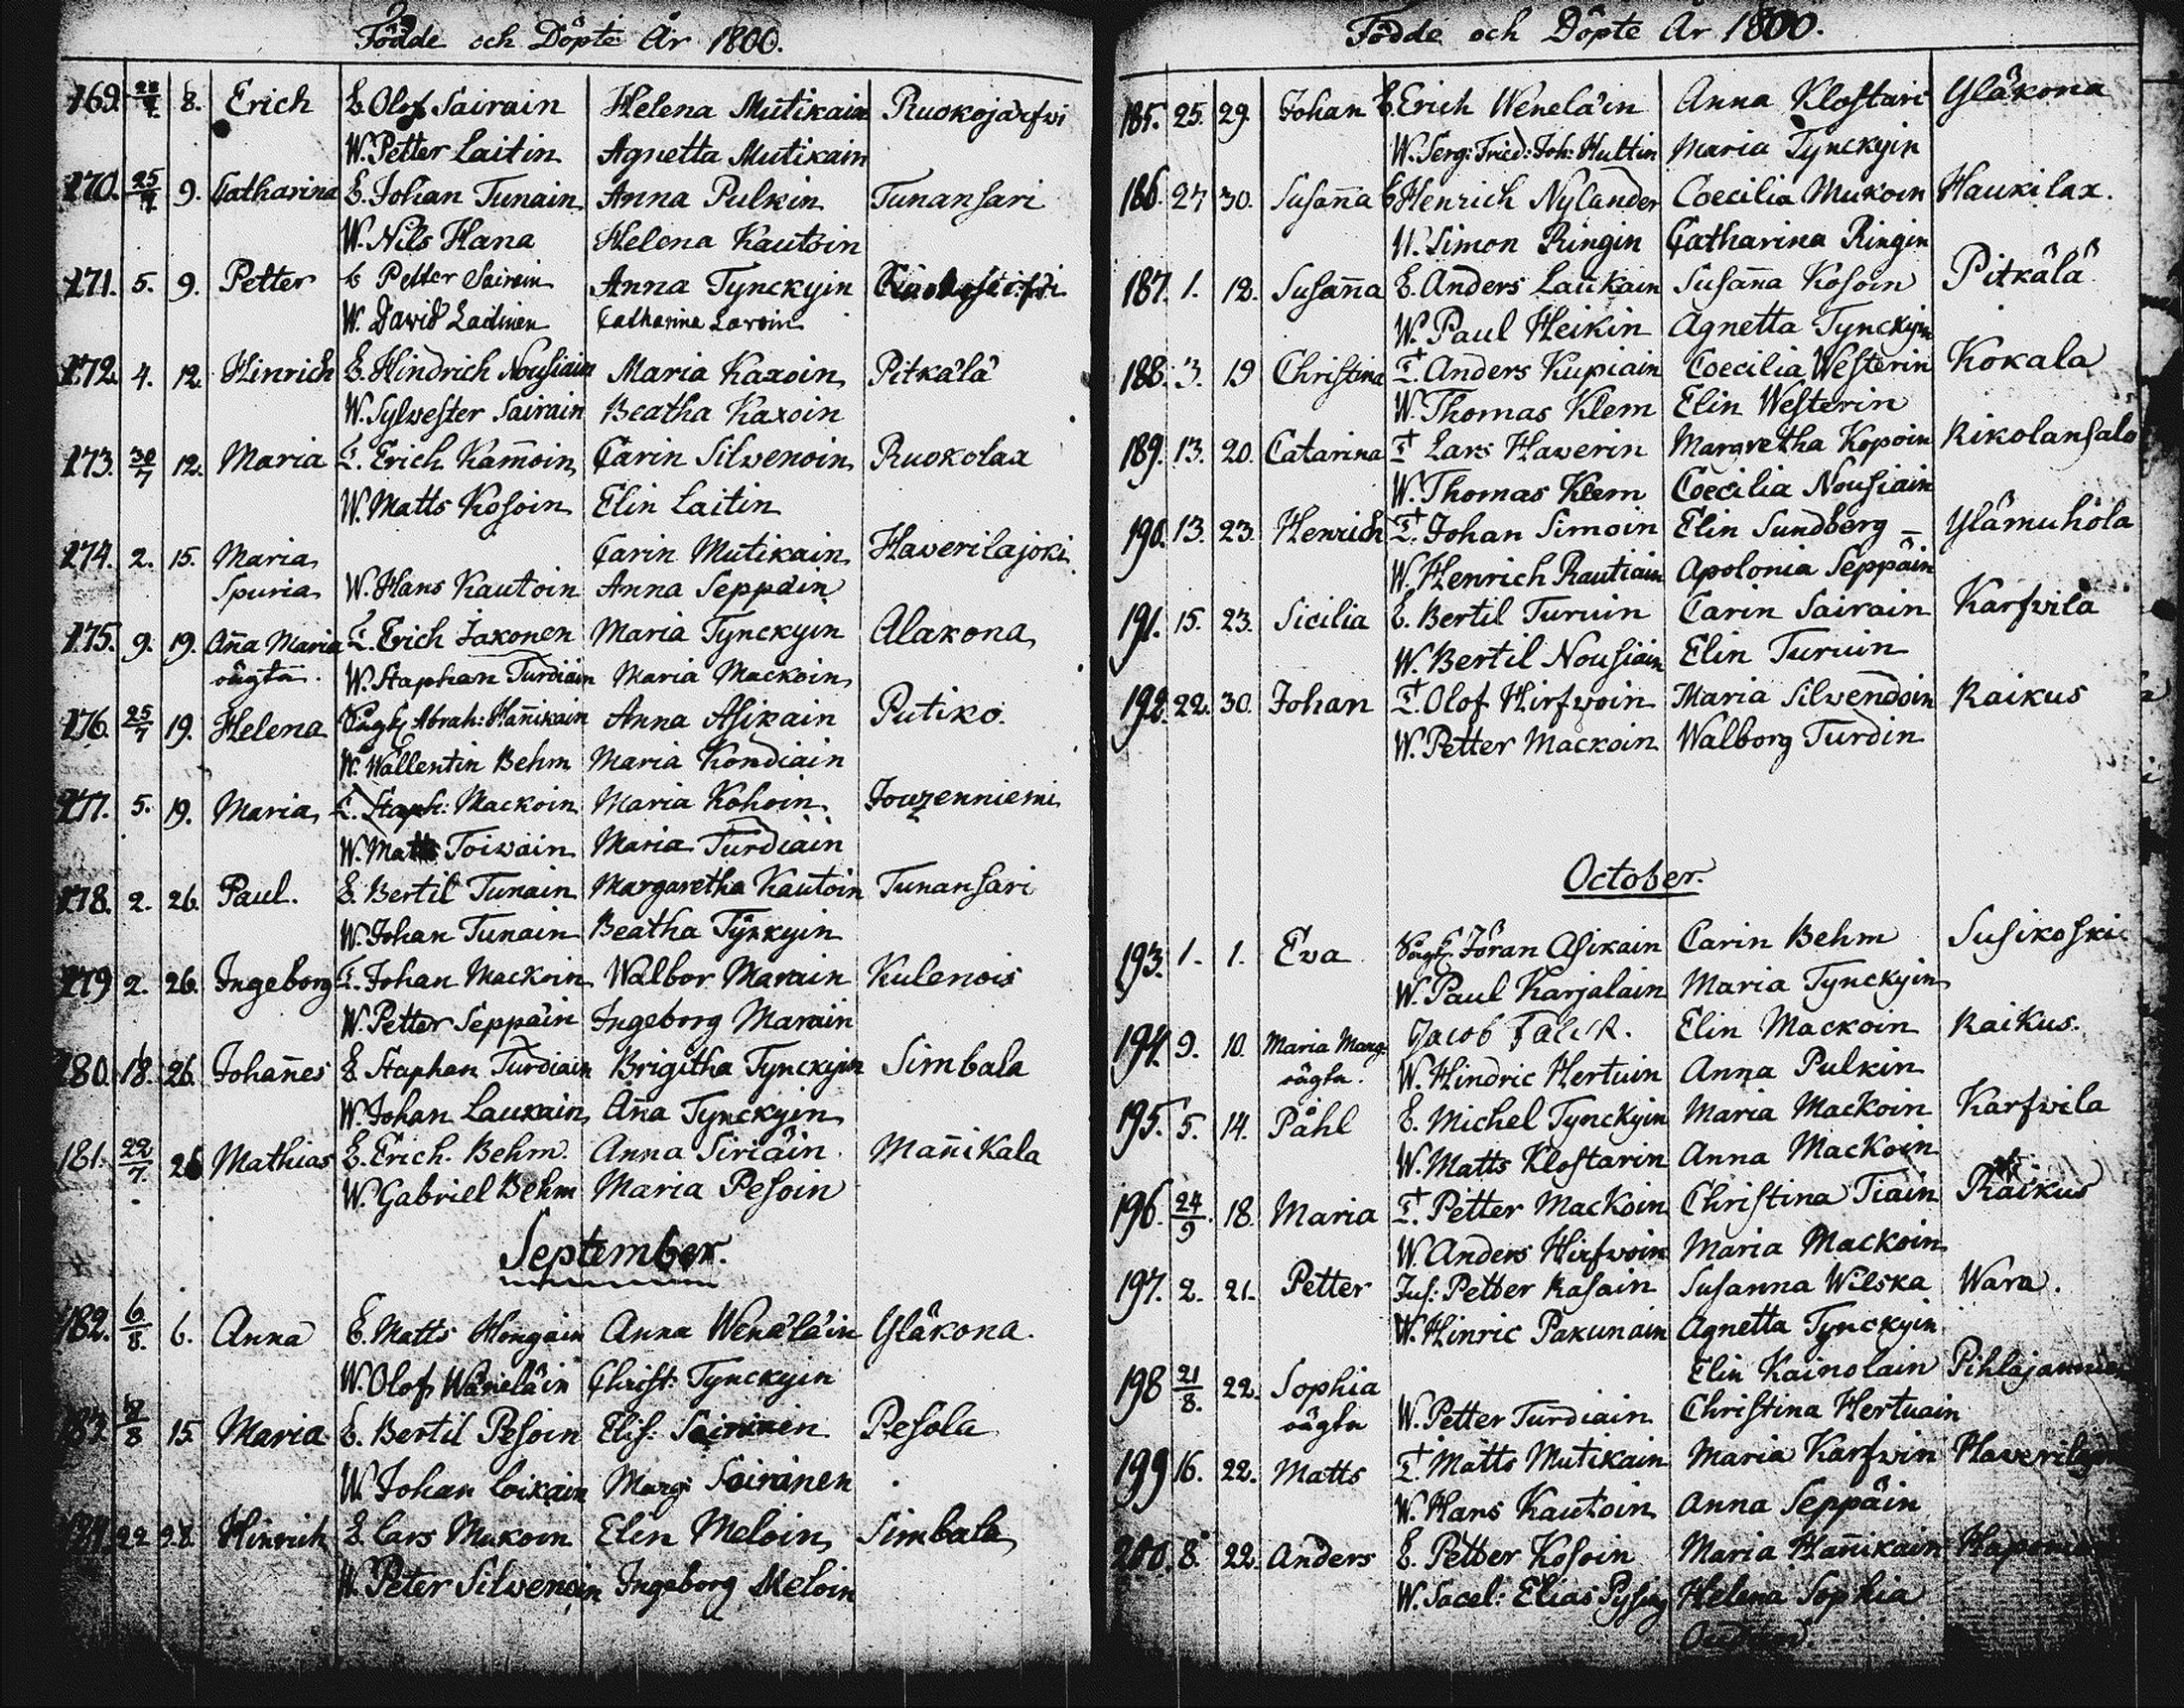 Födde och Döpte År 1800.
169. 28/7. 8. Erich B. Olof Sairain Helena Mutikain Ruokojärfwi
W. Petter Laitin Agnetta Mutikain
170. 25/7 9. Catharina B. Johan Tunain Anna Pulkin Tunansari
W. Nils Hana Helena Kautoin
171. 5. 9. Petter b Petter Sairain Anna Tynckyin
W. David Ladinen Catharina
172. 4. 12. Hinrich B. Hindrich Nousiain Maria Kaxoin Pitkälä
W. Sylwester Sairain Beatha Kaxoin
173. 30/7 12. Maria T. Erich Kam̄oin Carin Silwenoin Ruokolax
W. Matts Kosoin Elin Laitin
174. 2. 15. Maria Carin Mutikain Haverilajoki
Spuria W. Hans Kautoin Anna Seppäin
175. 9. 19. An̄a Maria T. Erich Jaxonen Maria Tynckyin Alakona
oägta. W. Staphan Turdiain Maria Mackoin
176. 25/7 19. Helena Abrah: Han̄ikain Anna Asikain Putiko.
W. Wallentin Behm Maria Kondiain
177. 5. 19. Maria T. Staph: Mackoin Maria Kohoin Jouzenniemi
W. Matts Toiwain Maria Turdiain
178. 2. 26. Paul. B. Bertil Tunain Margaretha Kautoin Tunansari
W. Johan Tunain Beatha Tynkyin
179 2. 26. Ingeborg T. Johan Mackoin Walbor Marain Kulenois
W. Petter Seppäin Ingeborg Marain
180. 18. 26. Johan̄es B. Staphan Turdiain Brigitha Tynckyin Simbala
W. Johan Laukain An̄a Tynckyin
181. 22/7. 26 Mathias B. Erich. Behm. Anna Siriäin Man̄ikala
W. Gabriel Behm Maria Pesoin
September.
182. 6/8. 6. Anna B. Matts Hongain Anna Wenäläin Yläkona.
W. Olof Wäneläin Christ: Tynckyin
183. 7/8 15. Maria B. Bertil Pesoin Elis: Sairainen Pesola
W. Johan Loikain Marg: Sairanen
184. 22 28. Hinrich B. Lars Mukoin Elin Meloin Simbala
W. Peter Silwenoin Ingeborg Meloin
Födde och Döpte År 1800.
185. 25. 29. Johan B. Erich Weneläin Anna Klostari Yläkona
W. Serg: Fried: Joh: Hultin Maria Tynckyin
186. 27 30. Susan̄a B Henrich Nylander Coecilia Mukoin Haukilax.
W. Simon Ringin Catharina Ringin
187. 1. 12. Susan̄a B. Anders Laukain Susan̄a Kosoin Pitkälä
W. Paul Heikin Agnetta Tynckyin
188. 3. 19 Christina T. Anders Kupiain Coecilia Westerin Kokala
W. Thomas Klem Elin Westerin
189. 13. 20. Catarina T Lars Hawerin Margretha Kopoin Rikolansalo
W. Thomas Klem Coecilia Nousiain
190. 13. 23. Henrich T. Johan Simoin Elin Sundberg Ylämuhola
W. Henrich Rautiain Apolonia Seppäin
191. 15. 23. Sicilia B. Bertil Turuin Carin Sairain Karfwila
W. Bertil Nousiain Elin Turuin
192. 22. 30. Johan T. Olof Hirfwoin Maria Silwendoin Raikus
W. Petter Mackoin Walborg Turdin
October.
193. 1. 1. Eva Jöran Asikain Carin Behm Susikoski
W. Paul Karjalain Maria Tynckyin
194. 9. 10. Maria Marg: Jacob Falck. Elin Mackoin Raikus.
oägta. W. Hindric Hertuin Anna Pulkin
195. 5. 14. Påhl B. Michel Tynckyin Maria Mackoin Karfwila
W. Matts Klostarin Anna Mackoin
196. 24/9. 18. Maria T. Petter Mackoin Christina Tiain Raikus
W. Anders Hirfwoin Maria Mackoin
197. 2. 21. Petter Jus: Petter Rasain Susanna Wilska Wara.
W. Hinric Pakunain Agnetta Tynckyin
198 21/8. 22. Sophia Elin Kainolain
oägta W. Petter Turdiain Christina Hertuain
199 16. 22. Matts T. Matts Mutikain Maria Karfwin
W. Hans Kautoin Anna Seppäin
200. 8. 22. Anders B. Petter Kosoin Maria Han̄ikain
W. Sacel: Elias Pysing Helena Sophia